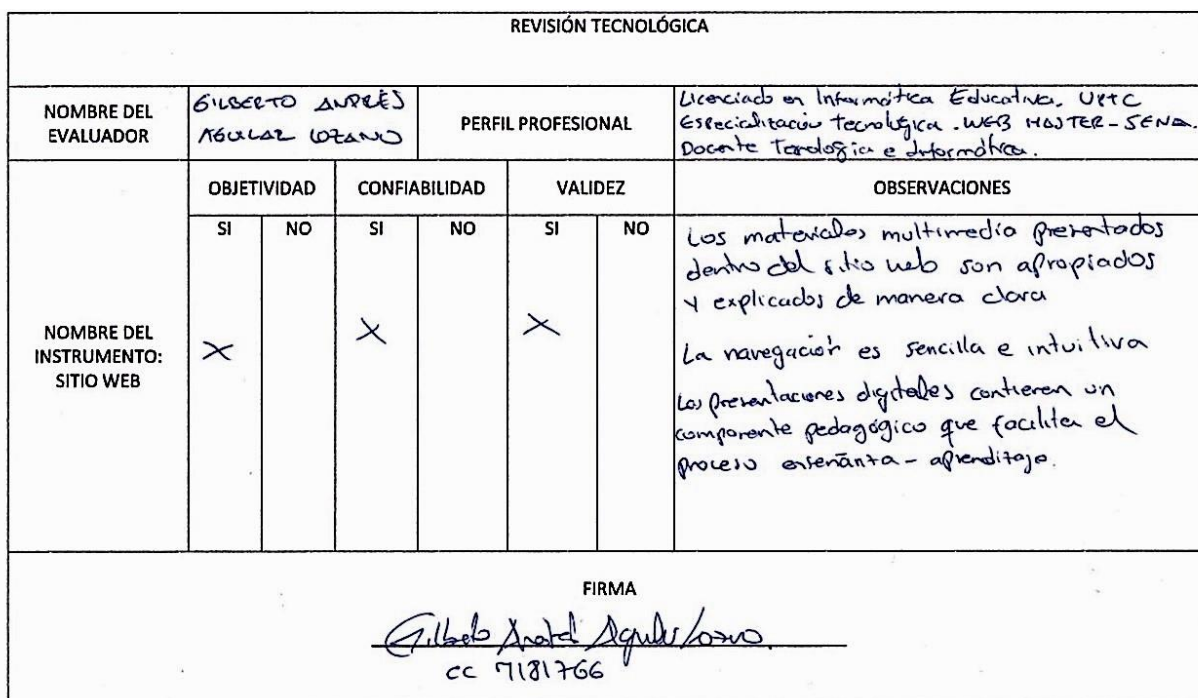 REVISIÓN TECNOLÓGICA
NOMBRE DEL EVALUADOR
GILBERTO ANDRÉS
AGUILAR LOZANO
PERFIL PROFESIONAL
Licenciado en Informática Educativa. UPTC
Especialización tecnológica. WEB MASTER - SENA.
Docente Tecnología e Informática.
OBJETIVIDAD CONFIABILIDAD VALIDEZ OBSERVACIONES
SI NO SI NO SI NO
NOMBRE DEL
INSTRUMENTO:
SITIO WEB
X X X
Los materiales multimedia presentados
dentro del sitio web son apropiados
y explicados de manera clara
La navegación es sencilla e intuitiva
Las presentaciones digitales contienen un
componente pedagógico que facilita el
proceso enseñanza - aprendizaje.
FIRMA
Gilberto Andrés Aguilar Lozano
cc 7181766